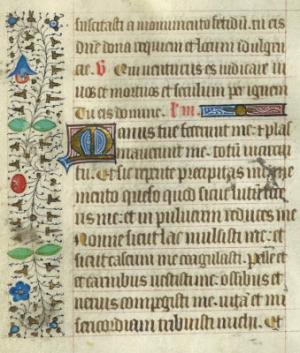 suscitasti a monumento fetidū. tu eis
dn̄e dona requiem et locum indulgen
cie. V Qui venturus es iudicare vi
vos et mortuos et seculum per ignem
Tu eis domine. 
Manus tue fecerunt me: et plas
maverunt me. totū in circui
tu. et sic repente precipitas me. me
mento queso quod sicut lutū fece
ris me: et in pulverem reduces me
Nonne sicut lac mulsisti me: et
sicut caseum me coagulasti. Pelle et
et carnibus vestisti me: ossibus et
nervis compegisti me. vitā et mi
sericordiam tribuisti michi. Et